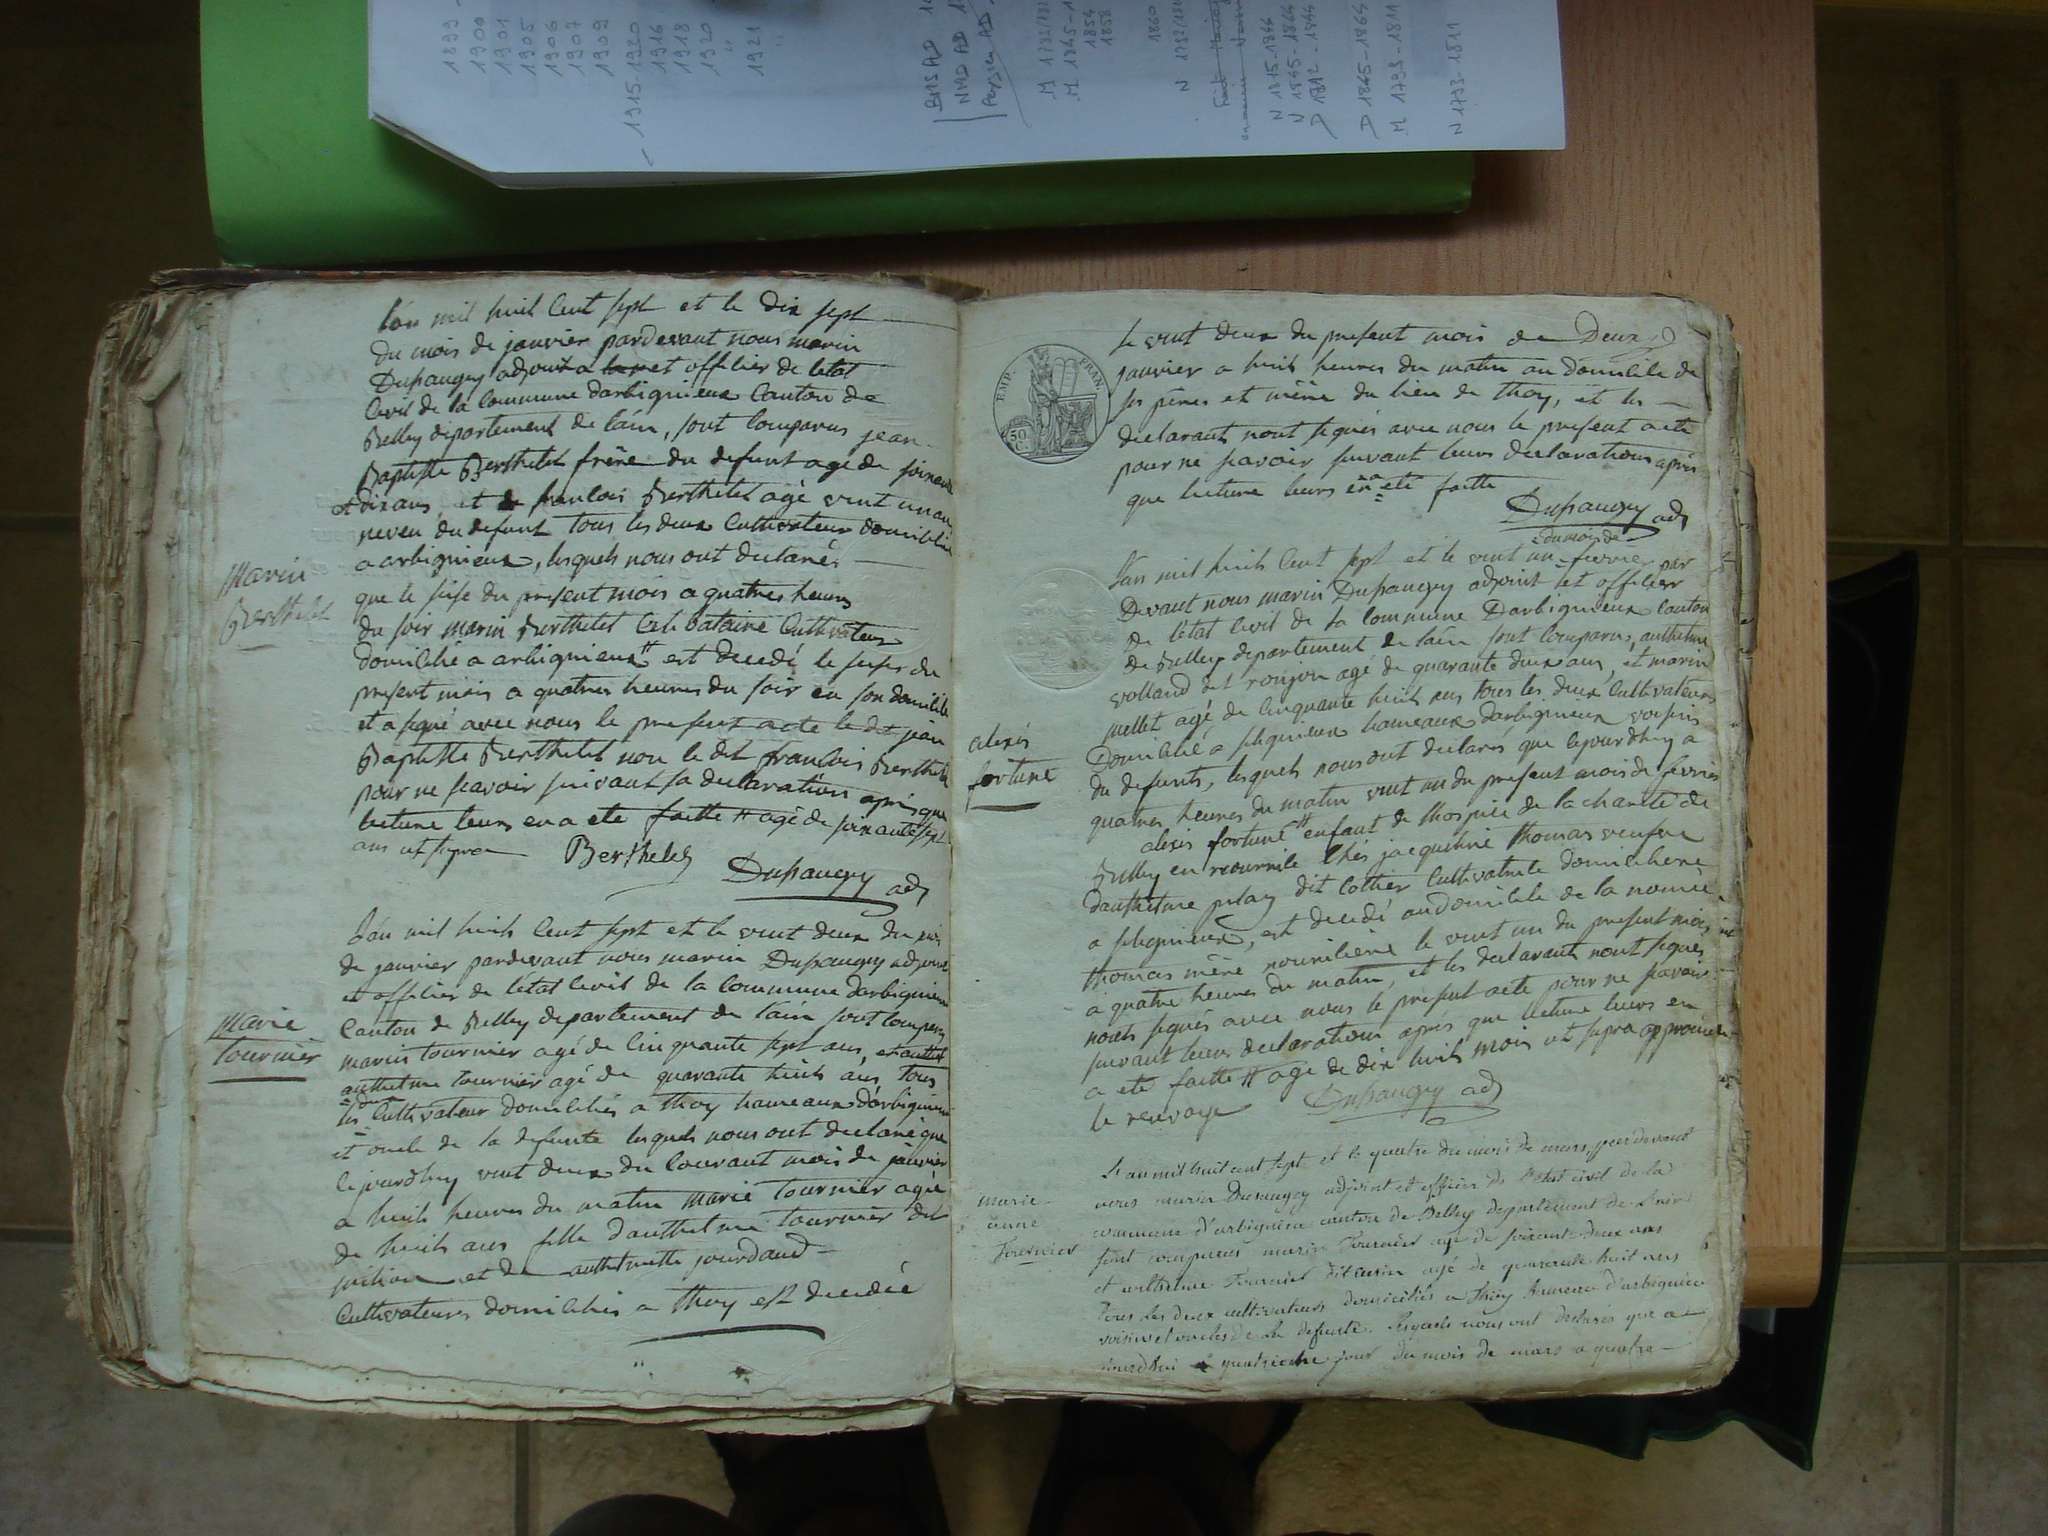 1899
1900
1901
1905
1906
1907
1909
1915-1920
1916
1918
1920
1921
BMS AD
NMD AD
M 1792/1792
M 1845-1
1854
1858
1860
N
N 1815-1844
N 1845-1864
D 1812-1844
D 1845-1864
M 1793-1811
N 1793-1811
l'an mil huit Cent sept et le dix sept
du mois de janvier pardevant nous marin
Dupaugey adjoint a et offilier de letat
Civil de la Commune darbignieux Canton de
Belley département de l'ain, sont Comparus jean
Baptiste Berthelet frère du defunt agé de soixante
et dix ans, et francois Berthelet agé vint un an
neveu du defunt tous les deux Cultivateur domicilié
a arbignieux, lesquels nous ont declarés
Marin
Berthelet
que le seise du present mois a quatres heures
du soir marin Berthelet Celibataire Cultivateur
domicilié a arbignieux # est decedé le seise du
present mois a quatres heures du soir en son domicile
et a signé avec nous le present acte le dt jean
Baptiste Berthelet non le dit francois Berthelet
pour ne scavoir suivant sa declaration après que
lecture leurs en a ete faitte # agé de soixante sept
ans ut supra
Berthelet
Dupaugey adj
l'an mil huit Cent sept et le vint deux du mois
de janvier pardevant nous marin Dupaugey adjoint
et offilier de l'état Civil de la Commune darbignieux
Canton de Belley departement de l'ain sont Comparus
Marie
tournier
marin tournier agé de Cinquante sept ans, et
anthelme tournier agé de quarante huit ans, tous
les deux Cultivateur domiciliés a thoy hameaux d'arbignieux
et oncle de la defunte lesquels nous ont declaré que
cejourdhuy vint deux du Courant mois de janvier
a huit heures du matin marie tournier agée
de huit ans fille d'anthelme tournier dit
et de anthelmette jourdand
Cultivateurs domiciliés a thoy est decedée
EMP. FRAN.
50 C.
le vint deux du present mois de
janvier a huit heures du matin au domicile de
ses pères et mère du lieu de thoy, et les
declarants nont signés avec nous le present acte
pour ne scavoir suivant leurs declarations après
que lecture leurs en a eté faitte
Dupaugey adj
du mois de
l'an mil huit Cent sept et le vint un fevrier par
Devant nous marin Dupaugey adjoint et offilier
de l'état Civil de la Commune Darbignieux Canton
de Belley departement de l'ain sont Comparus, anthelme
volland dit roujon agé de quarante deux ans, et marin
mellet agé de Cinquante huit ans tous les deux Cultivateurs
alexis
fortuné
Domicilié a hameaux darbignieux voisins
du defunts, lesquels nous ont declarés que cejourdhuy a
quatres heures du matin vint un du present mois de fevrier
alexis fortuné # enfant de lhospice de la charité de
Belley en nourrile chés jacqueline thomas veufve
danthelme pilaz dit Cottier Cultivatrile domiciliere
a, est decedé au domicile de la nomée
thomas mère nourriliere le vint un du present mois
a quatre heures du matin, et les declarants nont signés
nonts signés avec nous le present acte pour ne scavoir
suivant leurs declaration après que lecture leurs en
a eté faitte # agé de dix huit mois ut supra approuvé
le renvoye Dupaugey adj
L'an mil huit cent sept et le quatre du mois de mars, pardevant
marie
anne
Tournier
nous marin Dupaugey adjoint et officier de l'état civil de la
commune d'arbignieu canton de Belley departement de l'ain
sont comparus marin Tournier agé de soixante deux ans
et anthelme Tournier dit agé de quarante huit ans
tous les deux cultivateurs domiciliés a Thoy hameau d'arbignieu
voisins et oncles de la defunte. lesquels nous ont declarés que a
jourdhui quatrieme jour du mois de mars a quatre